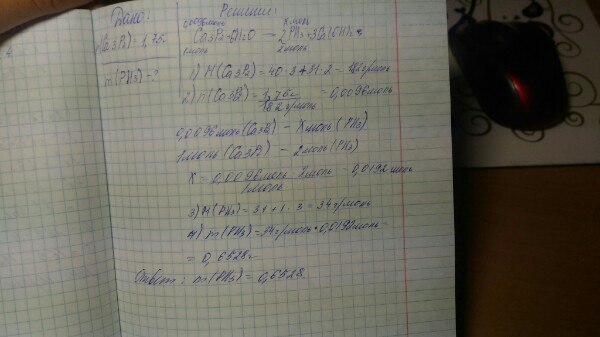 Дано:
m(Ca3P2) = 1,75г
m(PH3) - ?
Решение:
0,0096моль X моль
Ca3P2+6H2O → 2PH3+3Ca(OH)2
1моль 2моль
1) M(Ca3P2) = 40·3+31·2 = 182г/моль
2) n(Ca3P2) = 1,75г / 182г/моль = 0,0096моль
0,0096моль(Ca3P2) - Xмоль(PH3)
1моль(Ca3P2) - 2моль(PH3)
X = 0,0096моль · 2моль / 1моль = 0,0192 моль
3) M(PH3) = 31+1·3 = 34г/моль
4) m(PH3) = 34г/моль · 0,0192моль =
= 0,6528г
Ответ: m(PH3) = 0,6528